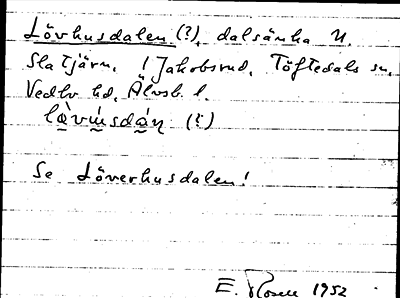 Lövhusdalen (?), dalsänka N.
Sla tjärn. / Jakobsrud, Töftedals sn,
Vedbo hd, Älvsb. l.
(?)
Se Löverhusdalen!
E. Rosell 1952